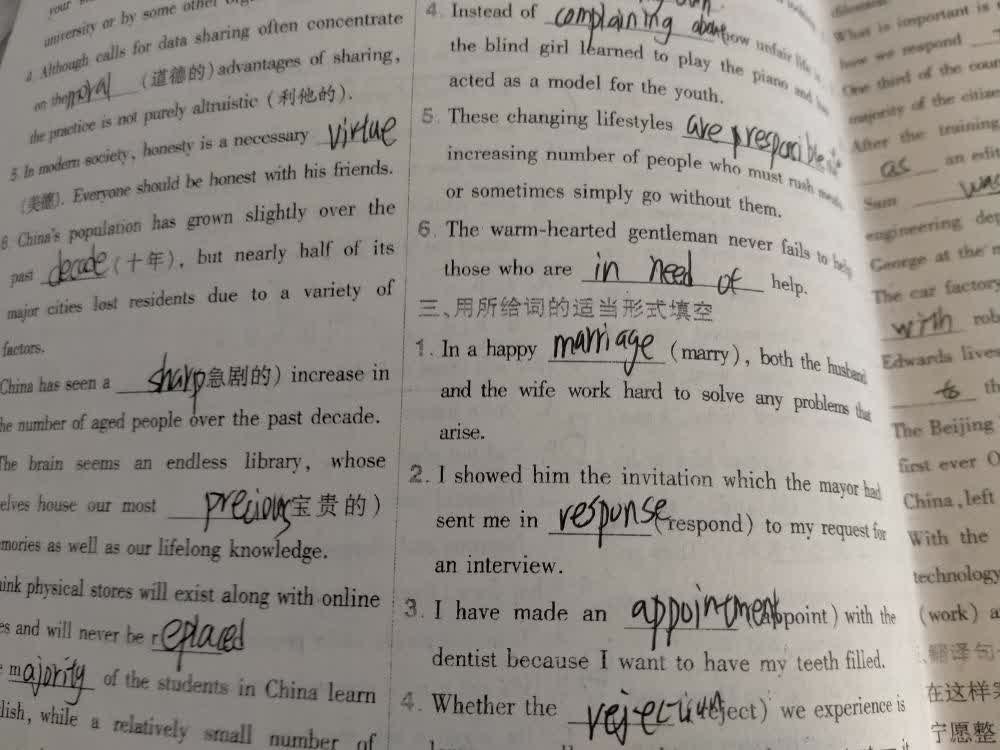 university or by some other
4. Although calls for data sharing often concentrate
on the moral (道德的) advantages of sharing,
the practice is not purely altruistic (利他的).
5. In modern society, honesty is a necessary virtue
(美德). Everyone should be honest with his friends.
6. China's population has grown slightly over the
past decade (十年), but nearly half of its
major cities lost residents due to a variety of
factors.
China has seen a sharp 急剧的) increase in
he number of aged people over the past decade.
The brain seems an endless library, whose
elves house our most precious 宝贵的)
mories as well as our lifelong knowledge.
ink physical stores will exist along with online
es and will never be replaced
majority of the students in China learn
lish, while a relatively small number of
4. Instead of complaining about how unfair life is
the blind girl learned to play the piano and has
acted as a model for the youth.
5. These changing lifestyles are responsible
increasing number of people who must rush meals
or sometimes simply go without them.
6. The warm-hearted gentleman never fails to help
those who are in need of help.
三、用所给词的适当形式填空
1. In a happy marriage (marry), both the husband
and the wife work hard to solve any problems that
arise.
2. I showed him the invitation which the mayor had
sent me in response (respond) to my request for
an interview.
3. I have made an appointment (appoint) with the
dentist because I want to have my teeth filled.
4. Whether the rejection (reject) we experience is
What is important is
how we respond
One third of the coun
majority of the citize
After the training
as an edit
Sam was
engineering dep
George at the
The car factory
with rob
Edwards lives
to th
The Beijing
first ever O
China, left
With the
technology
(work) a
翻译句
在这样
宁愿整